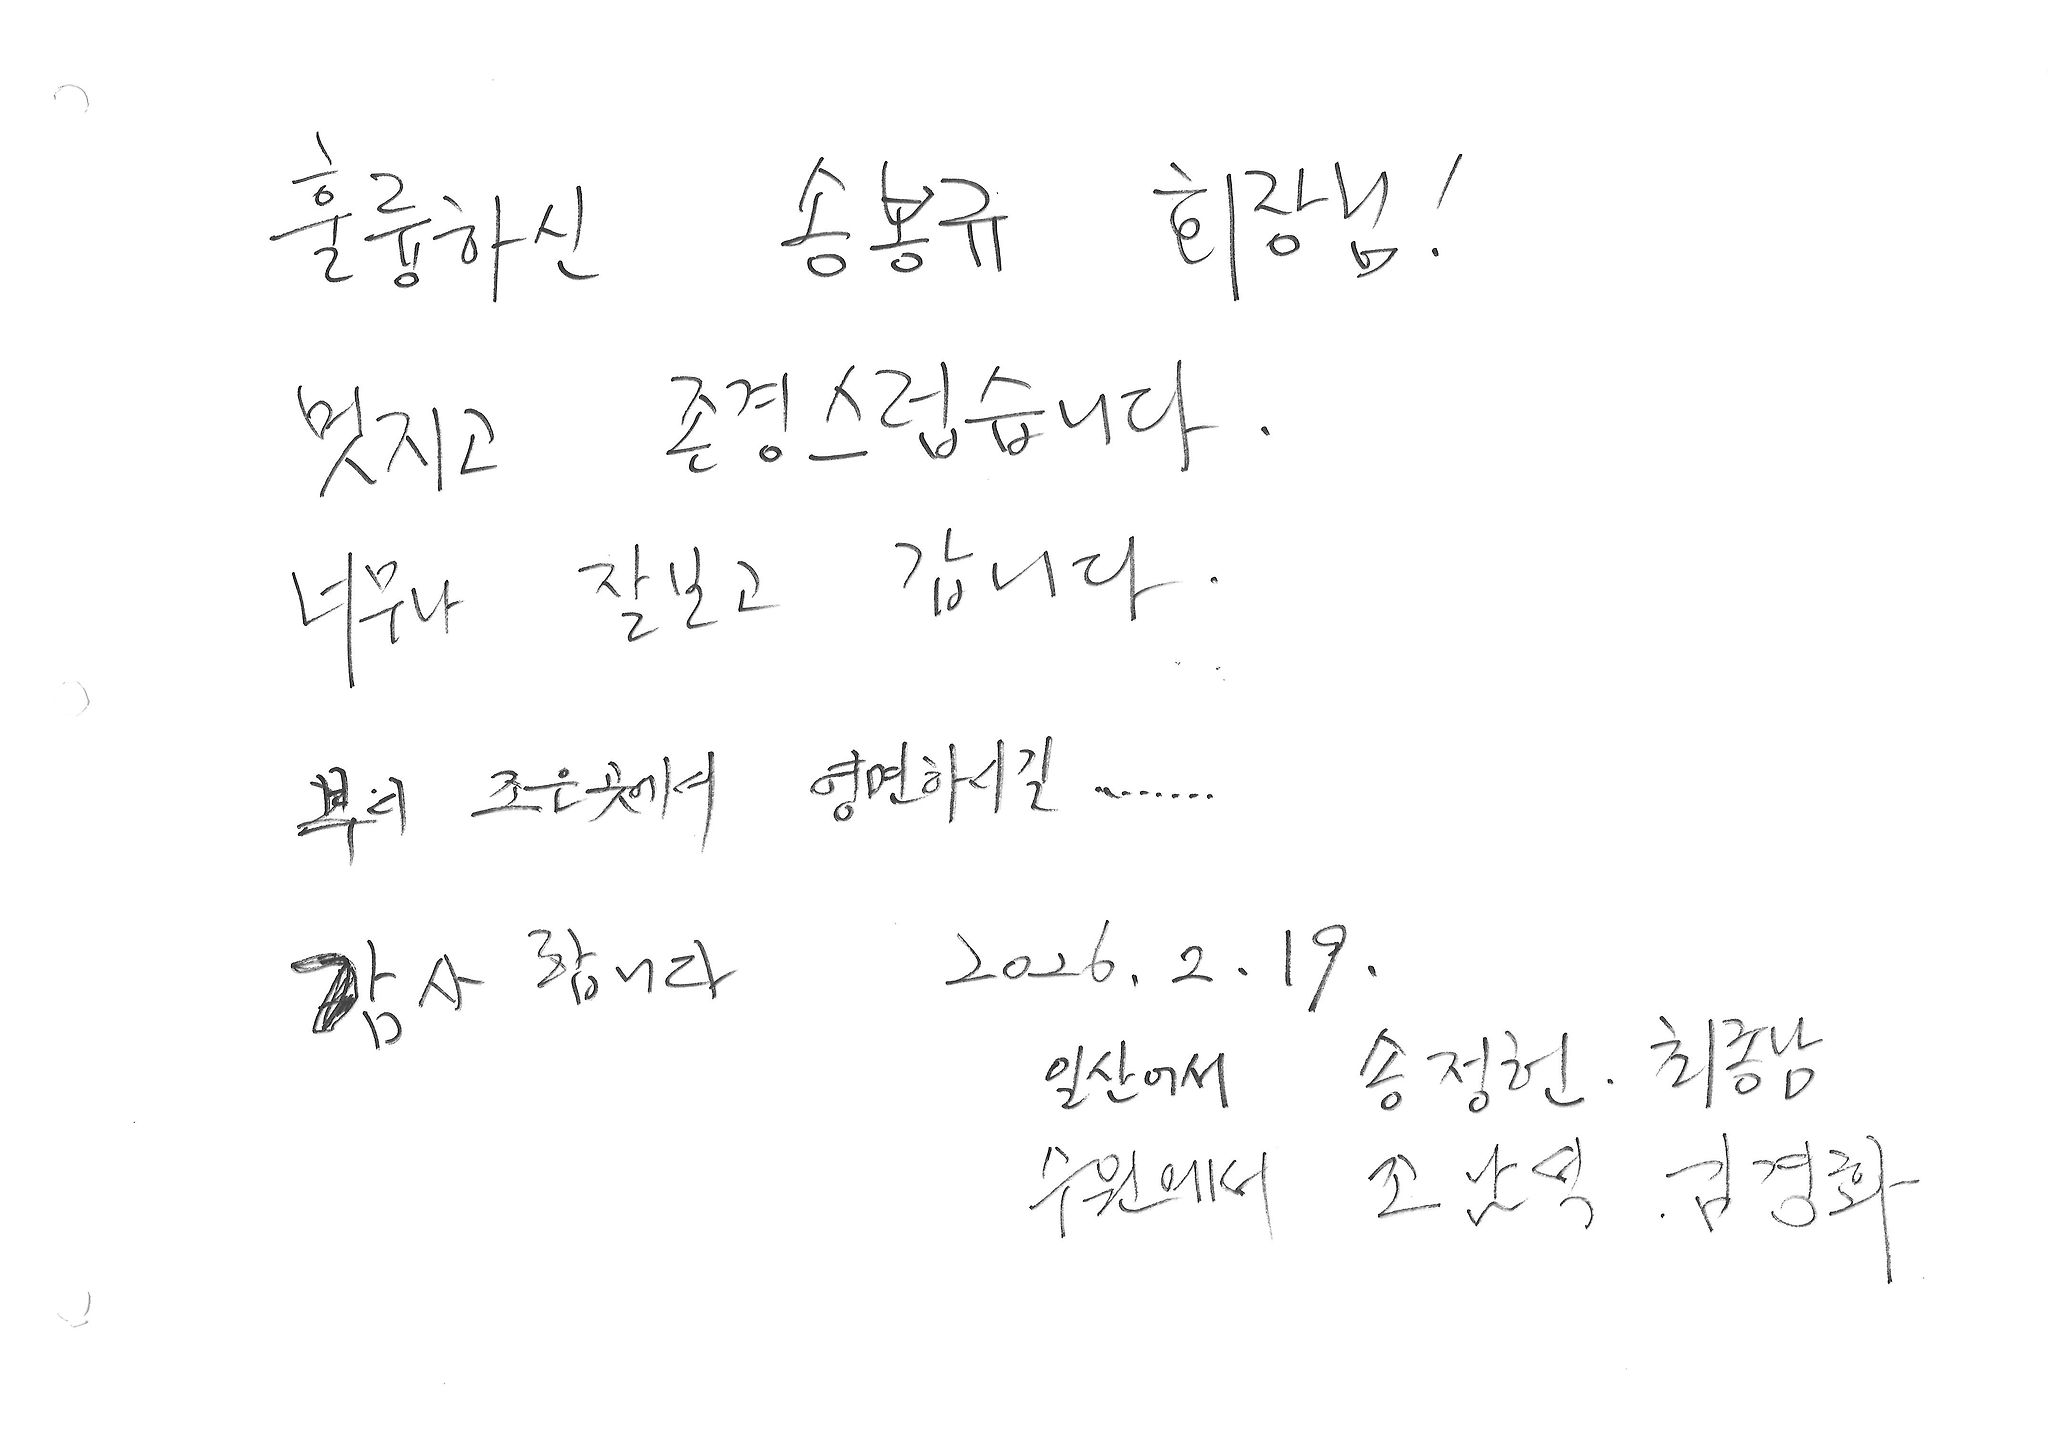 훌륭하신 송봉규 회장님!
멋지고 존경스럽습니다.
너무나 잘보고 갑니다.
부디 조은곳에서 영면하시길 ........
감사합니다 2026. 2. 19.
일산에서 송정헌. 최종남
수원에서 조남억. 김경화